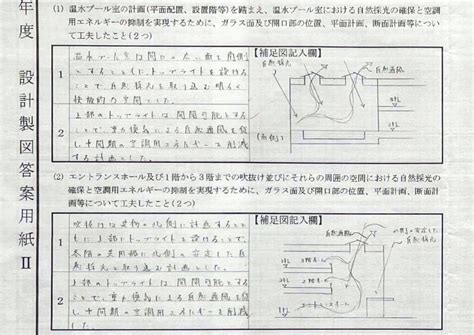 年度 設計製図答案用紙Ⅱ
(1) 温水プール室の計画(平面配置、設置階等)を踏まえ、温水プール室における自然採光の確保と空調
用エネルギーの抑制を実現するために、ガラス面及び開口部の位置、平面計画、断面計画等につい
て工夫したこと(2つ)
1
温水プール室は間口の
とするとともにトップライトを設ける
ことで、自然採光を取り込む明るく
開放的な空間とした。
2
上部のトップライトは開閉可能とする
ことで、重力換気による自然通風を促
し中間期の空調用エネルギーを削減
する計画とした。
【補足図記入欄】
自然採光
自然通風
(南側)
(2) エントランスホール及び1階から3階までの吹抜け並びにそれらの周囲の空間における自然採光の
確保と空調用エネルギーの抑制を実現するために、ガラス面及び開口部の位置、平面計画、断面計
画等について工夫したこと(2つ)
1
吹抜けは建物の北側に計画すること
もに上部にトップライトを設けることで、
各階の共用部に北側の安定した
自然採光を取り込む計画とした。
2
上部のトップライトは開閉可能とする
ことで、重力換気による自然通風を促
し中間期の空調用エネルギーを削減
する計画とした。
【補足図記入欄】
自然通風
北側の安定した
自然採光
エントランスホール